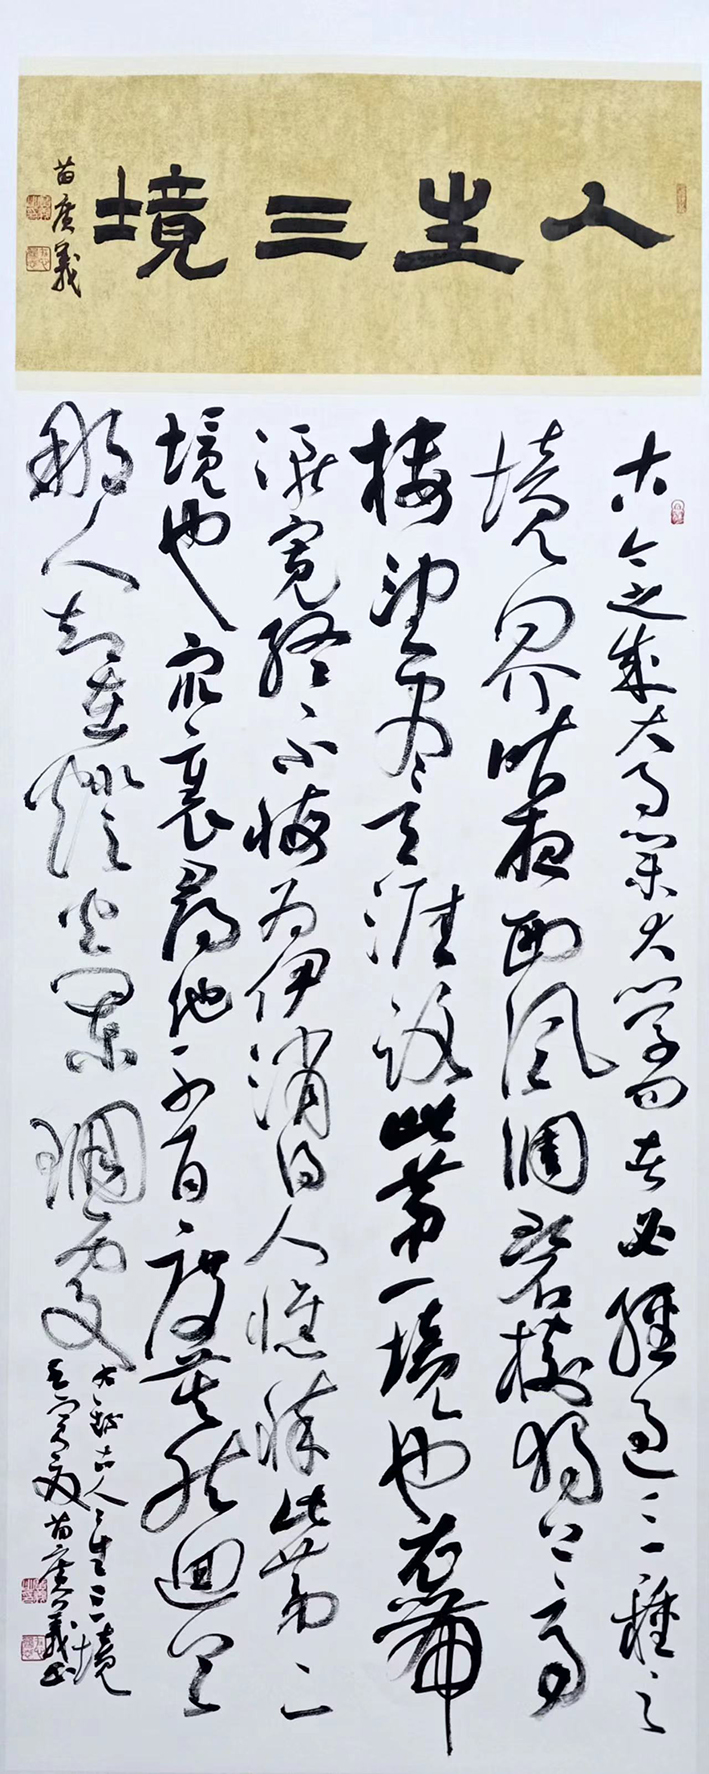 人生三境
苗廣義
古今之成大事業大學問者必經過三種之
境界昨夜西風凋碧樹獨上高
樓望盡天涯路此第一境也衣帶
漸寬終不悔為伊消得人憔悴此第二
境也眾裏尋他千百度驀然迴首
那人卻在燈火闌珊處
右錄古人人生三境
壬寅夏苗廣義書